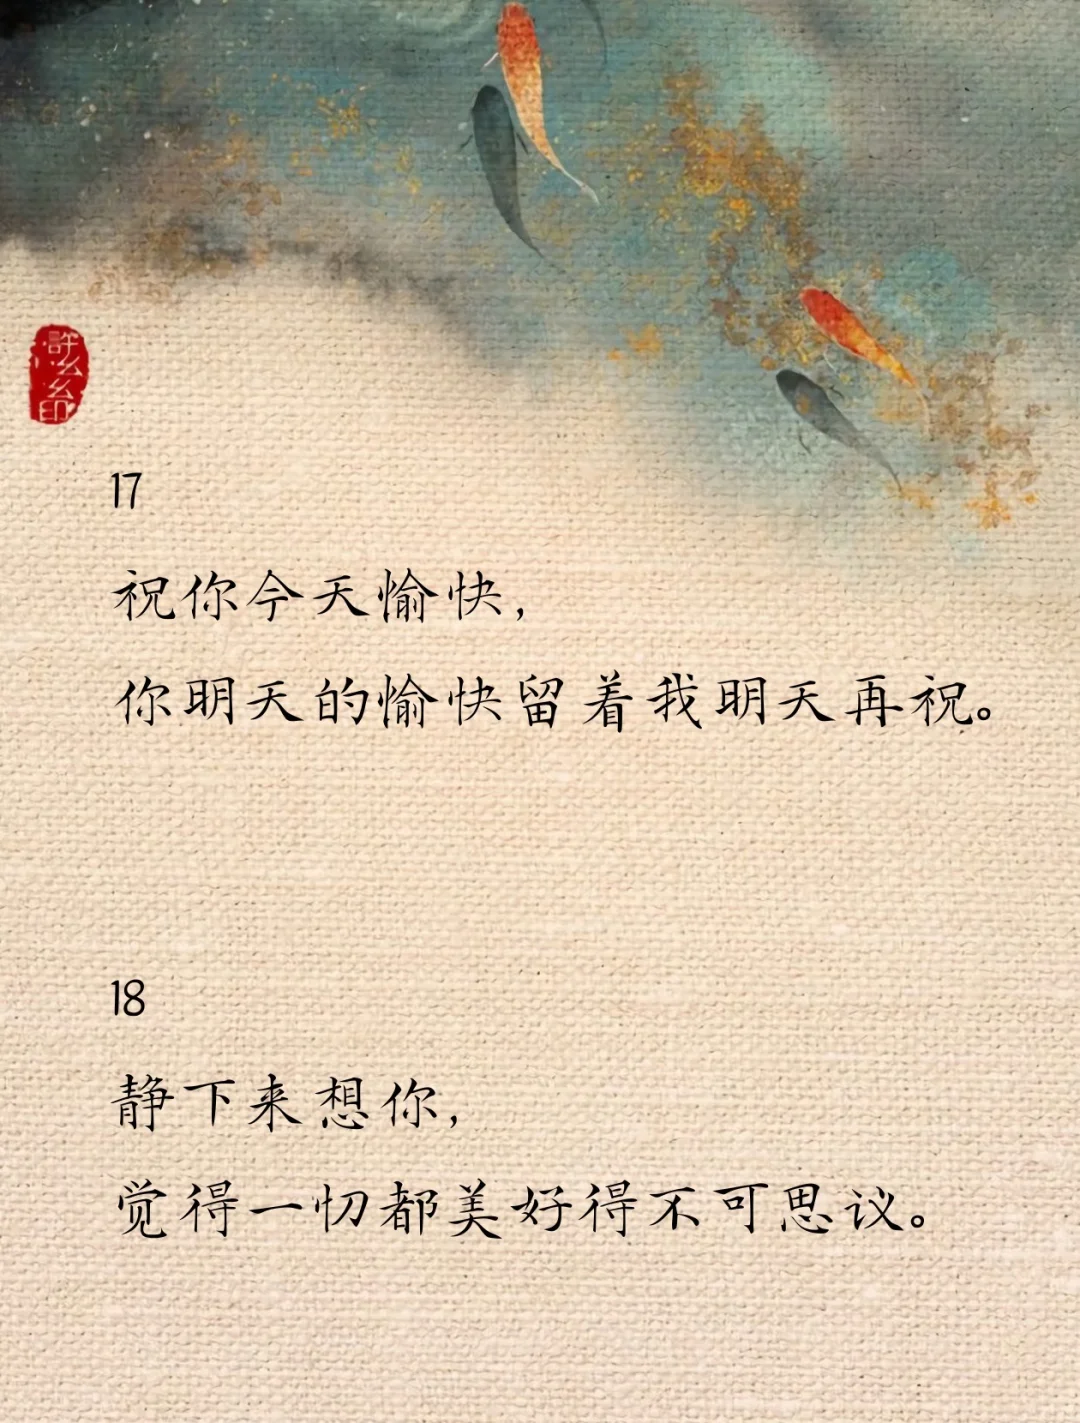 許
么
么
印
17
祝你今天愉快，
你明天的愉快留着我明天再祝。
18
静下来想你，
觉得一切都美好得不可思议。